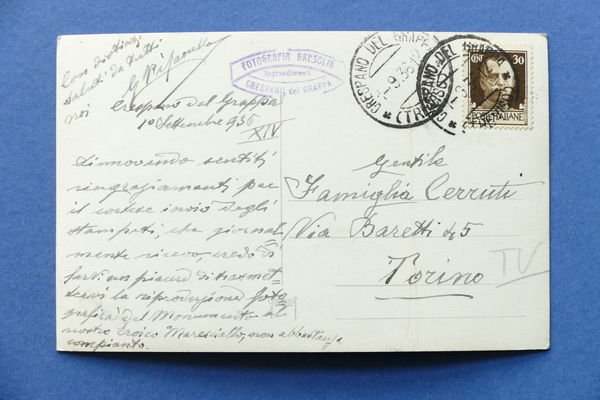 Con distinti
saluti da tutti
noi
FOTOGRAFIA BRESOLIN
Ingrandimenti
CRESPANO del GRAPPA
Crespano del Grappa
1o Settembre 936
XIV
Rinnovando sentiti
ringraziamenti per
il cortese invio degli
stampati, che giornal-
mente ricevo, credo di
farvi un piacere di trasmet-
tervi la riproduzione foto-
grafica del Monumento al
nostro Eroico Maresciallo, non abbastanza
compianto.
CRESPANO DEL GRAPPA
(TREVISO)
CENT 30
POSTE ITALIANE
Gentile
Famiglia Cerruti
Via Baretti 45
Torino
TV